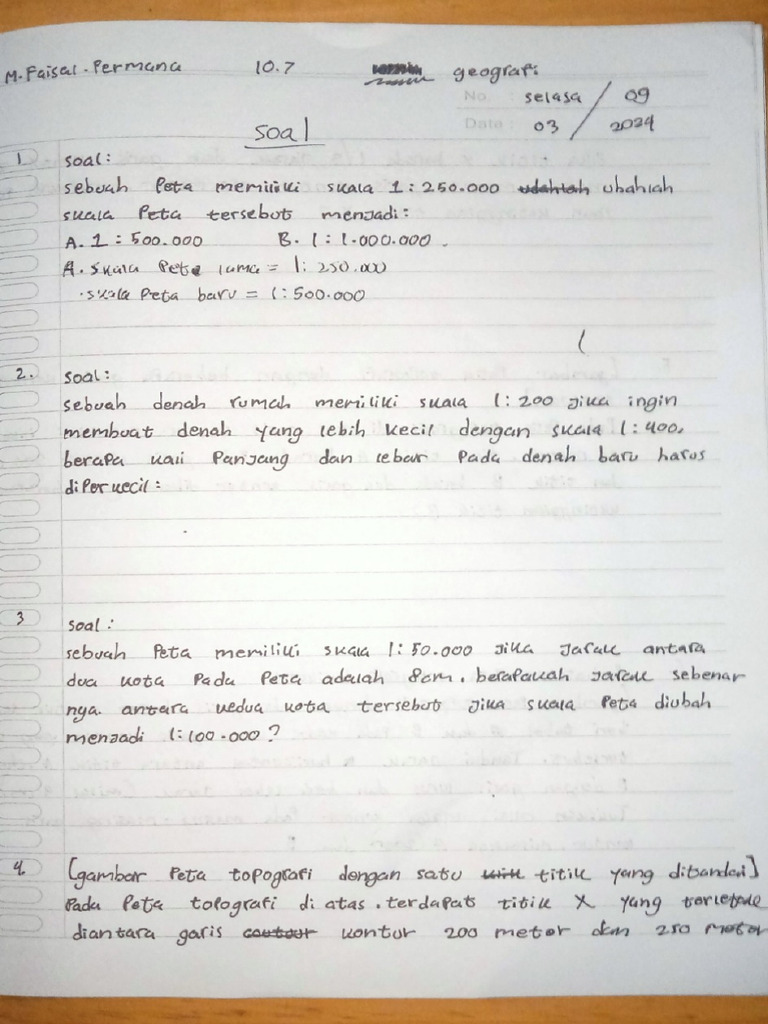 M. Faisal. Permana 10.7 geografi
No. : selasa / 09
Date : 03 / 2024
soal
1. soal:
sebuah Peta memiliki skala 1 : 250.000 ubahlah
skala Peta tersebut menjadi:
A. 1 : 500.000 B. 1 : 1.000.000.
A. skala Peta lama = 1: 250.000
. skala Peta baru = 1: 500.000
2. soal:
sebuah denah rumah memiliki skala 1: 200 jika ingin
membuat denah yang lebih kecil dengan skala 1: 400.
berapa kali Panjang dan lebar Pada denah baru harus
diperkecil :
3 soal :
sebuah Peta memiliki skala 1: 50.000 jika Jarak antara
dua kota Pada Peta adalah 8cm. berapakah Jarak sebenar
nya. antara kedua kota tersebut jika skala Peta diubah
menjadi 1:100.000 ?
4. [gambar Peta topografi dengan satu titik yang ditandai]
Pada Peta topografi di atas. terdapat titik X yang terletak
diantara garis kontur 200 meter dan 250 meter